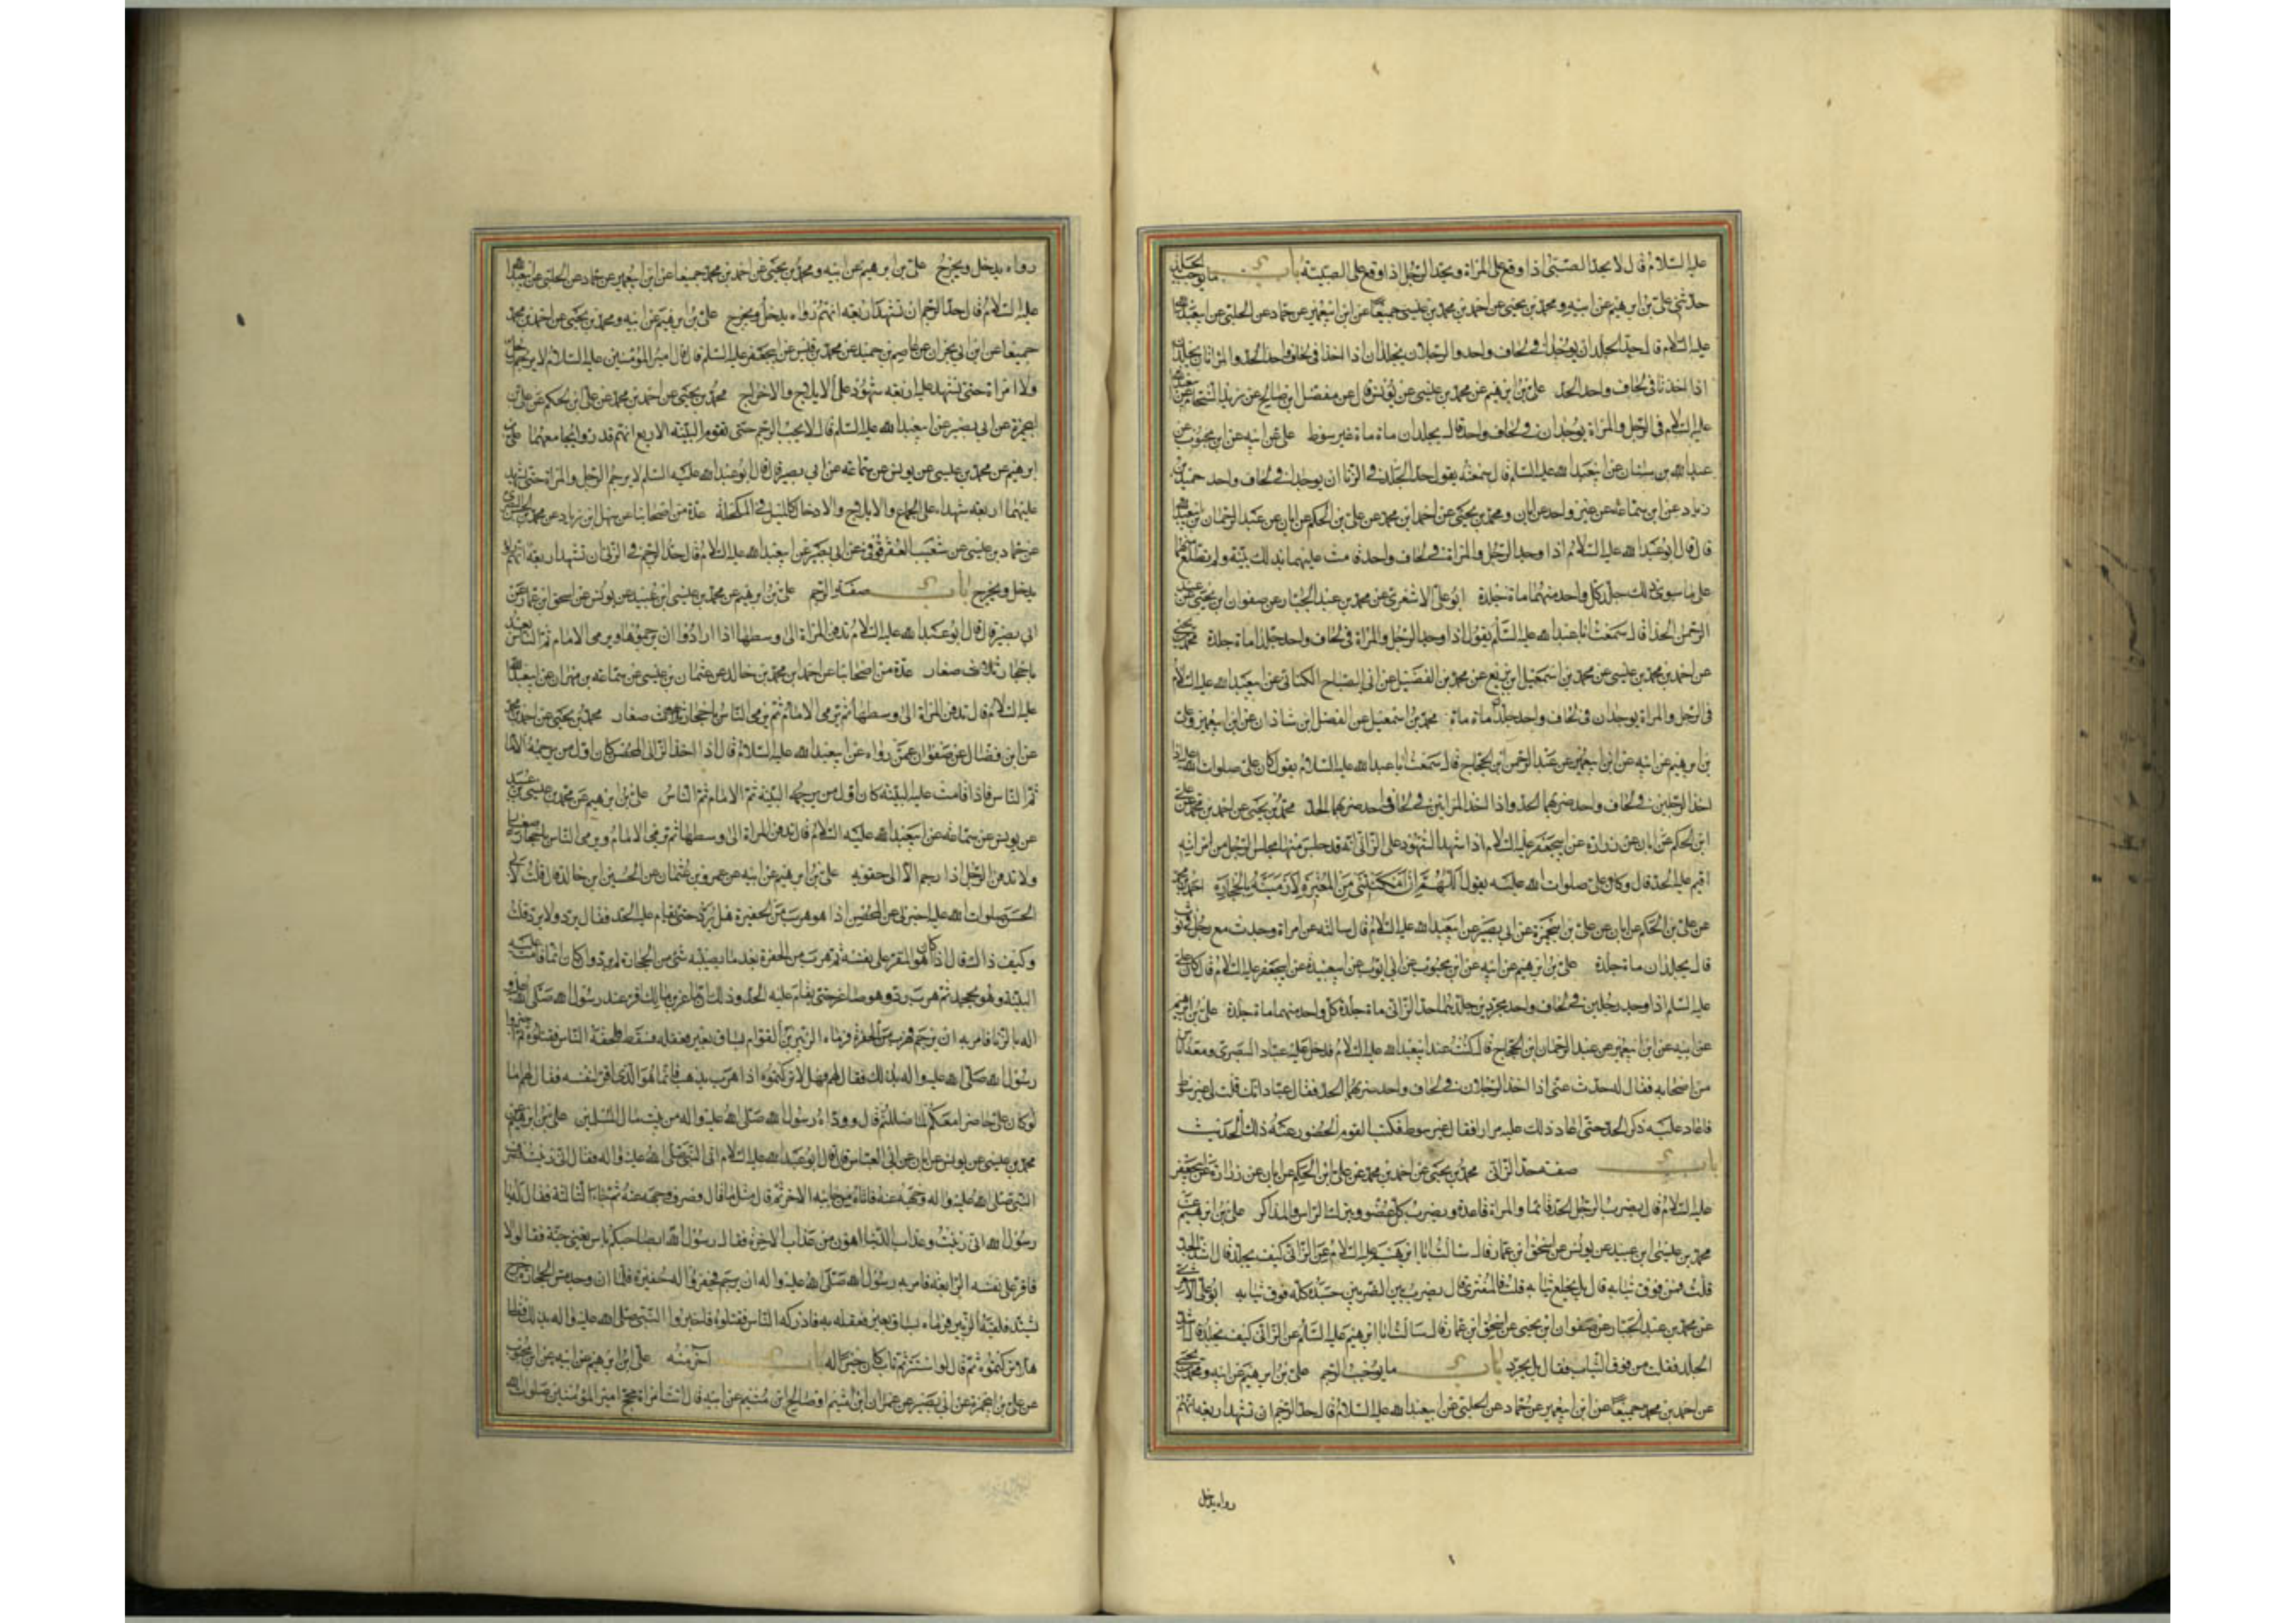 عليه السلام قال لا يحد الصبي اذا وقع على المراة ويحد الرجل اذا وقع على الصبية باب ما يوجب الجلد
حدثني علي بن ابرهيم عن ابيه ومحمد بن يحيى عن احمد بن محمد بن عيسى جميعا عن ابن ابي عمير عن حماد عن الحلبي عن ابي عبد الله
عليه السلام قال حد الجلد ان يوجدا في لحاف واحد والرجلان يجلدان اذا اخذا في لحاف واحد الحد والمراتان يجلدان
اذا اخذتا في لحاف واحد الحد علي بن ابرهيم عن محمد بن عيسى عن يونس عن مفضل بن صالح عن زيد الشحام عن ابي عبد الله
عليه السلام في الرجل والمراة يوجدان في لحاف واحد قال يجلدان ماة ماة غير سوط علي عن ابيه عن ابن محبوب عن
عبد الله بن سنان عن ابي عبد الله عليه السلم قال سمعته يقول حد الجلد في الزنا ان يوجدا في لحاف واحد حميد بن
زياد عن ابن سماعة عن غير واحد عن ابان ومحمد بن يحيى عن احمد ابن محمد عن علي بن الحكم عن ابان عن عبد الرحمان بن ابي عبد الله
قال قال ابو عبد الله عليه السلام اذا وجد الرجل والمراة في لحاف واحد قامت عليهما بذلك بينة ولم يطلع منهما
على ما سوى ذلك جلد كل واحد منهما ماة جلدة ابو علي الاشعري عن محمد بن عبد الجبار عن صفوان ابن يحيى عن عبد
الرحمن الحذا قال سمعت ابا عبد الله عليه السلم يقول اذا وجد الرجل والمراة في لحاف واحد جلدا ماة جلدة محمد بن يحيى
عن احمد بن محمد بن عيسى عن محمد بن اسمعيل ابن بزيع عن محمد بن الفضيل عن ابي الصباح الكناني عن ابي عبد الله عليه السلام
في الرجل والمراة يوجدان في لحاف واحد جلدا ماة ماة محمد بن اسمعيل عن الفضل ابن شاذان عن ابن ابي عمير وعلي
بن ابرهيم عن ابيه عن ابن ابي عمير عن عبد الرحمن ابن الحجاج قال سمعت ابا عبد الله عليه السلام يقول كان علي صلوات الله عليه اذا
اخذ الرجلين في لحاف واحد ضربهما الحد واذا اخذ المراتين في لحاف واحد ضربهما الحد محمد بن يحيى عن احمد بن محمد عن علي
ابن الحكم عن ابان عن زرارة عن ابي جعفر عليه السلام اذا شهد الشهود على الزاني انه قد جلس منها مجلس الرجل من امراته
اقيم عليه الحد قال وكان علي صلوات الله عليه يقول اللهم ان امكنتني من المغيرة لارمينه بالحجارة احمد بن محمد
عن علي بن الحكم عن ابان عن علي بن ابي حمزة عن ابي بصير عن ابي عبد الله عليه السلام قال سالته عن امراة وجدت مع رجل في ثوب
قال يجلدان ماة جلدة علي بن ابرهيم عن ابيه عن ابن محبوب عن ابي ايوب عن ابي عبيدة عن ابي جعفر عليه السلام قال كان علي
عليه السلم اذا وجد رجلين في لحاف واحد مجردين جلدهما حد الزاني ماة جلدة كل واحد منهما ماة جلدة علي بن ابرهيم
عن ابيه عن ابن ابي عمير عن عبد الرحمان ابن الحجاج قال كنت عند ابي عبد الله عليه السلام فدخل عليه عباد البصري ومعه اناس
من اصحابه فقال له حدثني عن اذا اخذ الرجلان في لحاف واحد ضربهما الحد فقال عباد انك قلت لي غير سوط
فاعاد عليه ذكر الحد حتى اعاد ذلك عليه مرارا فقال غير سوط فكتب القوم الحضور عند ذلك الحديث
باب صفة حد الزاني محمد بن يحيى عن احمد بن محمد عن علي ابن الحكم عن ابان عن زرارة عن ابي جعفر
عليه السلام قال يضرب الرجل الحد قائما والمراة قاعدة ويضرب كل عضو ويترك الراس والمذاكر علي بن ابرهيم عن
محمد بن عيسى ابن عبيد عن يونس عن اسحق ابن عمار قال سالت ابا ابرهيم عليه السلام عن الزاني كيف يجلد قال اشد الجلد
قلت فمن فوق ثيابه قال بل يخلع ثيابه قلت فالمفتري قال يضرب بين الضربين جسده كله فوق ثيابه ابو علي الاشعري
عن محمد بن عبد الجبار عن صفوان ابن يحيى عن اسحق ابن عمار قال سالت ابا ابرهيم عليه السلم عن الزاني كيف يجلد قال اشد
الجلد فقلت من فوق الثياب فقال بل يجرد باب ما يوجب الرجم علي بن ابرهيم عن ابيه ومحمد بن يحيى
عن احمد بن محمد جميعا عن ابن ابي عمير عن حماد عن الحلبي عن ابي عبد الله عليه السلام قال حد الرجم ان تشهد اربعة انهم
رواه يدخل
رواه يدخل ويخرج علي بن ابرهيم عن ابيه ومحمد بن يحيى عن احمد بن محمد جميعا عن ابن ابي عمير عن حماد عن الحلبي عن ابي عبد الله
عليه السلام قال حد الرجم ان تشهد اربعة انهم رواه يدخل ويخرج علي بن ابرهيم عن ابيه ومحمد بن يحيى عن احمد بن محمد
جميعا عن ابن ابي نجران عن عاصم بن حميد عن محمد بن قيس عن ابي جعفر عليه السلم قال قال امير المؤمنين عليه السلام لا يرجم رجل
ولا امراة حتى يشهد عليه اربعة شهود على الايلاج والاخراج محمد بن يحيى عن احمد بن محمد عن علي ابن الحكم عن علي بن
ابي حمزة عن ابي بصير عن ابي عبد الله عليه السلم قال لا يجب الرجم حتى تقوم البينة الاربع انهم قد راوه يجامعهما علي بن
ابرهيم عن محمد بن عيسى عن يونس عن سماعة عن ابي بصير قال قال ابو عبد الله عليه السلم لا يرجم الرجل والمراة حتى يشهد
عليهما اربعة شهداء على الجماع والايلاج والادخال كالميل في المكحلة عدة من اصحابنا عن سهل ابن زياد عن محمد بن
عن حماد بن عيسى عن شعيب العقرقوفي عن ابي بصير عن ابي عبد الله عليه السلام قال حد الرجم في الزنا ان تشهد اربعة انهم راوه
يدخل ويخرج باب صفة الرجم علي بن ابرهيم عن محمد بن عيسى ابن عبيد عن يونس عن اسحق ابن عمار عن
ابي بصير قال قال ابو عبد الله عليه السلام تدفن المراة الى وسطها اذا ارادوا ان يرجموها ويرمي الامام ثم الناس بعد
باحجار صغار عدة من اصحابنا عن احمد ابن محمد بن خالد عن عثمان بن عيسى عن سماعة بن مهران عن ابي عبد الله
عليه السلام قال تدفن المراة الى وسطها ثم يرمي الامام ثم يرمي الناس باحجار صغار محمد بن يحيى عن احمد بن محمد
عن ابن فضال عن صفوان عمن رواه عن ابي عبد الله عليه السلام قال اذا اقر الزاني المحصن كان اول من يرجمه الامام
ثم الناس فاذا قامت عليه البينة كان اول من يرجمه البينة ثم الامام ثم الناس علي بن ابرهيم عن محمد بن عيسى بن عبيد
عن يونس عن سماعة عن ابي عبد الله عليه السلام قال تدفن المراة الى وسطها ثم يرمي الامام ويرمي الناس باحجار صغار
ولا تدفن الرجل اذا رجم الا الى حقويه علي بن ابرهيم عن ابيه عن عمرو بن عثمان عن الحسين ابن خالد قال قلت لابي
الحسن صلوات الله عليه اخبرني عن المحصن اذا هو هرب من الحفيرة هل يرد حتى يقام عليه الحد فقال يرد ولا يرد قلت
وكيف ذاك قال اذا كان هو المقر على نفسه ثم هرب من الحفرة بعد ما يصيبه شئ من الحجارة لم يرد وان كان انما قامت عليه
البينة وهو يجحد ثم هرب رد وهو صاغر حتى يقام عليه الحد وذلك ان ماعز بن مالك اقر عند رسول الله صلى الله عليه و
اله بالزنا فامر به ان يرجم فهرب من الحفرة فرماه الزبير بن العوام بساق بعير فعقله فسقط فلحقه الناس فقتلوه ثم اخبروا
رسول الله صلى الله عليه واله بذلك فقال لهم فهلا تركتموه اذا هرب يذهب فانما هو الذي اقر على نفسه فقال لهم اما
لو كان علي حاضرا معكم لما ضللتم قال ووداه رسول الله صلى الله عليه واله من بيت مال المسلمين علي بن ابرهيم عن
محمد بن عيسى عن يونس عن ابان عن ابي العباس قال قال ابو عبد الله عليه السلام اتى النبي صلى الله عليه واله رجل فقال اني زنيت فصرف
النبي صلى الله عليه واله وجهه عنه فاتاه من جانبه الاخر ثم قال مثل ما قال فصرف وجهه عنه ثم جاء الثالثة فقال له يا
رسول الله اني زنيت وعذاب الدنيا اهون من عذاب الاخرة فقال رسول الله ابصاحبكم باس يعني جنة فقالوا لا
فاقر على نفسه الرابعة فامر به رسول الله صلى الله عليه واله ان يرجم فحفروا له حفيرة فلما ان وجد مس الحجارة خرج
يشتد فلقيه الزبير فرماه بساق بعير فعقله به فادركه الناس فقتلوه فاخبروا النبي صلى الله عليه واله بذلك فقال
هلا تركتموه ثم قال لو استتر ثم تاب كان خيرا له باب آخر منه علي ابن ابرهيم عن ابيه عن ابن محبوب
عن علي بن ابي حمزة عن ابي بصير عن عمران ابن ميثم او صالح ابن ميثم عن ابيه قال اتت امراة مجح امير المؤمنين صلوات الله